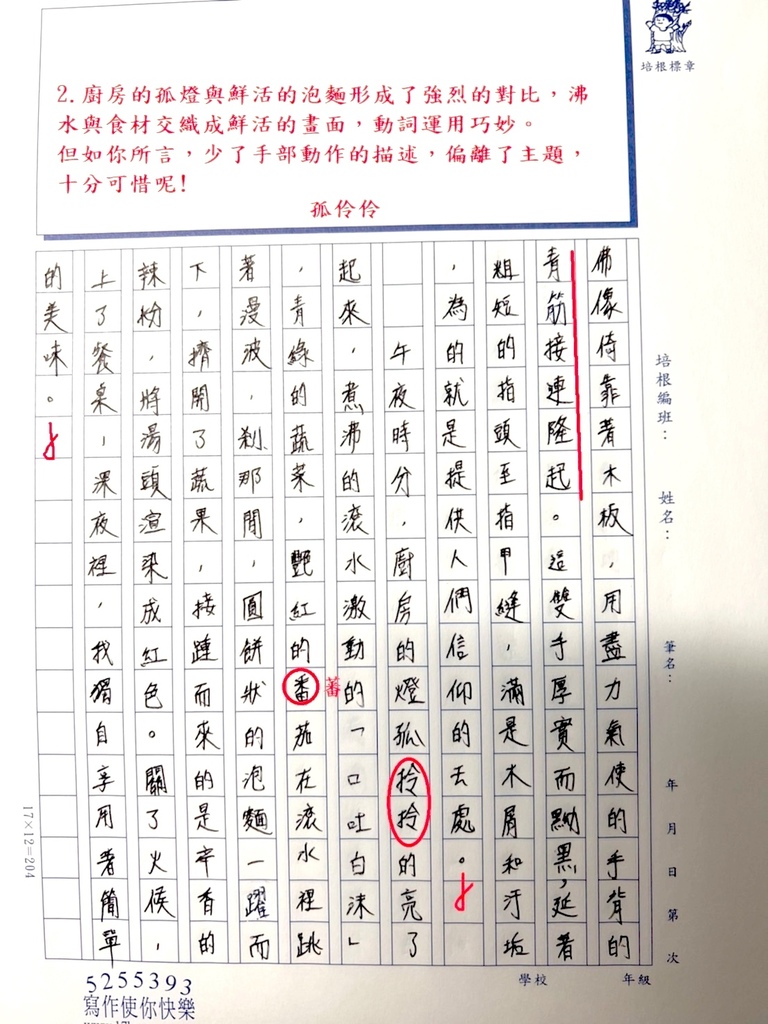 培根標章
2.廚房的孤燈與鮮活的泡麵形成了強烈的對比，沸
水與食材交織成鮮活的畫面，動詞運用巧妙。
但如你所言，少了手部動作的描述，偏離了主題，
十分可惜呢！
孤伶伶
培根編班： 姓名： 筆名： 年 月 日 第 次
佛像倚靠著木板，用盡力氣使的手背的
青筋接連隆起。這雙手厚實而黝黑，延著
粗短的指頭至指甲縫，滿是木屑和汙垢
，為的就是提供人們信仰的去處。
午夜時分，廚房的燈孤拎拎的亮了
起來，煮沸的滾水激動的「口吐白沫」
，青綠的蔬菜，艷紅的番茄在滾水裡跳
蕃
著漫波，剎那間，圓餅狀的泡麵一躍而
下，擠開了蔬果，接踵而來的是辛香的
辣粉，將湯頭渲染成紅色。關了火候，
上了餐桌，深夜裡，我獨自享用著簡單
的美味。
17×12=204
學校 年級
5255393
寫作使你快樂